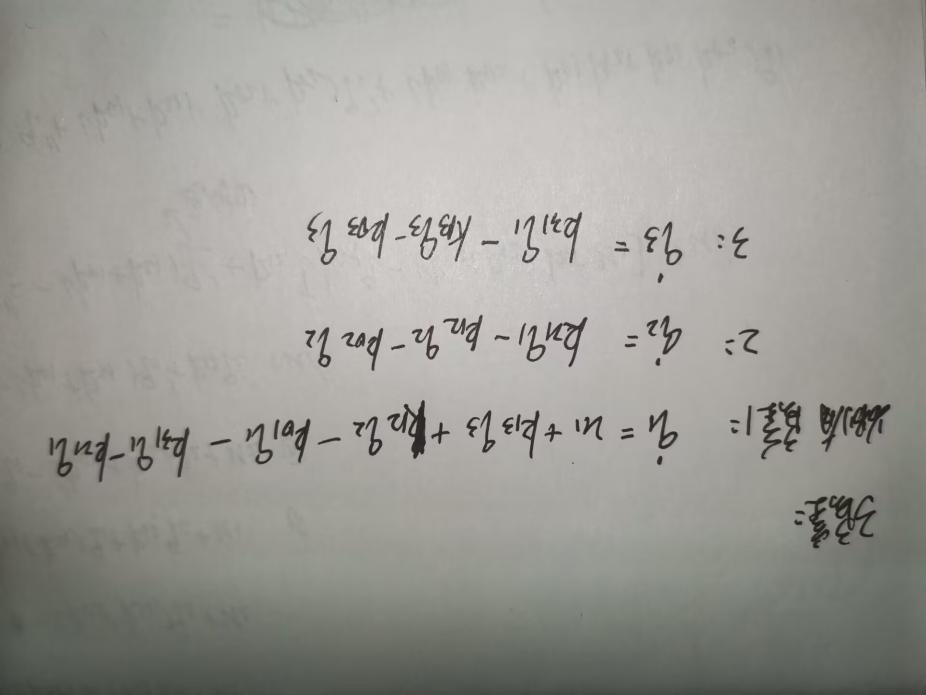 3房室:
房室1: q̇₁ = u₁ + k₁₃q₃ + k₁₂q₂ − k₀₁q₁ − k₃₁q₁ − k₂₁q₁
2: q̇₂ = k₂₁q₁ − k₁₂q₂ − k₀₂q₂
3: q̇₃ = k₃₁q₁ − k₁₃q₃ − k₀₃q₃